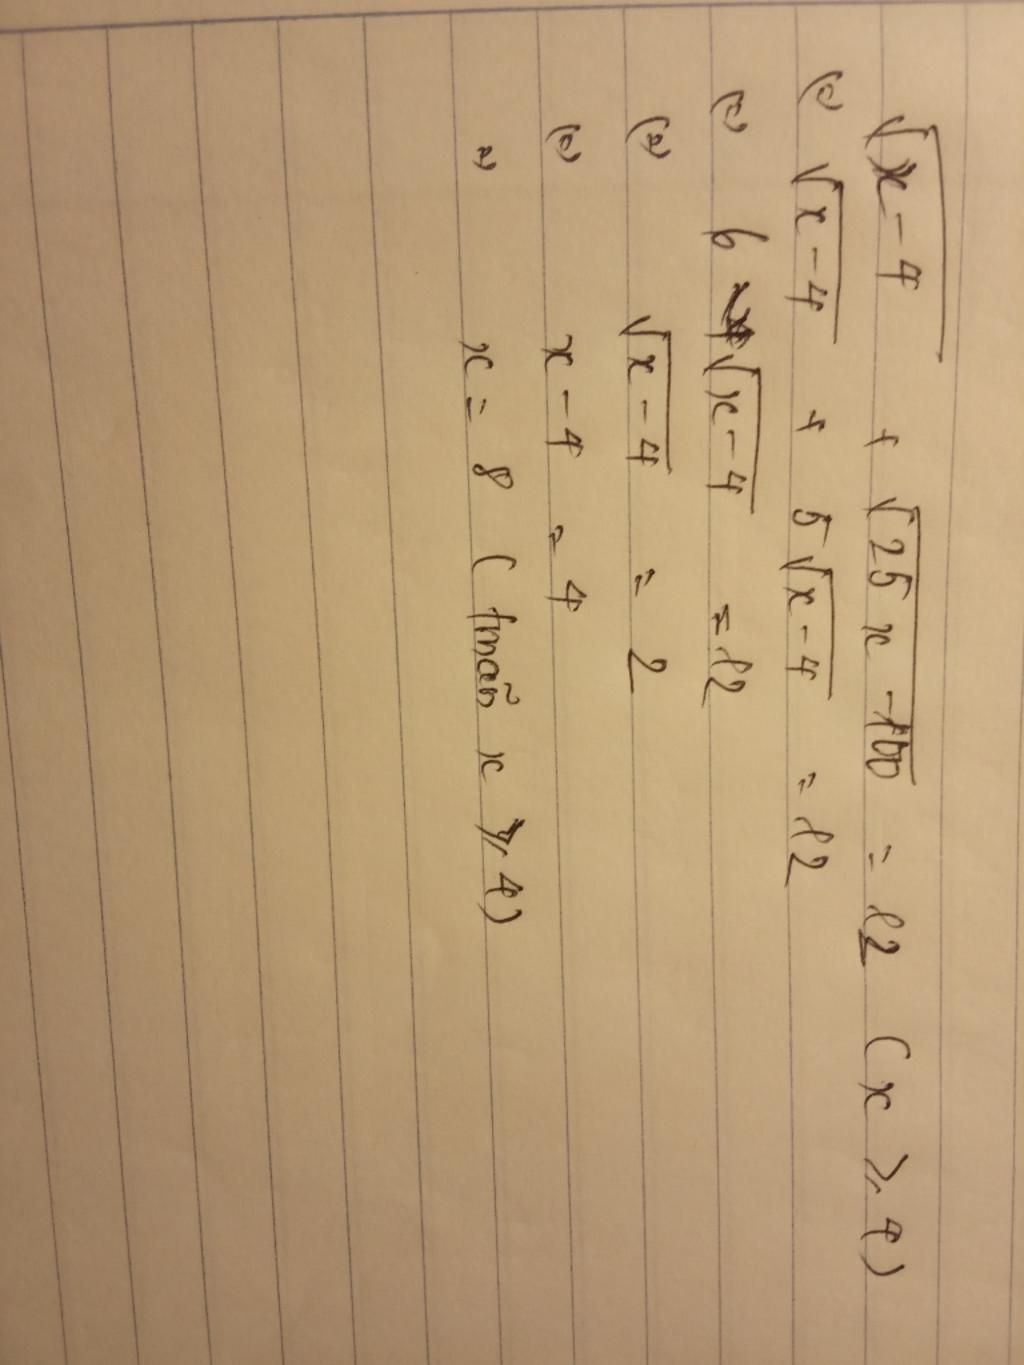 √(x-4) + √(25x-100) = 12 (x ≥ 4)
(=) √(x-4) + 5√(x-4) = 12
(=) 6√(x-4) = 12
(=) √(x-4) = 2
(=) x-4 = 4
=) x = 8 (tmãn x ≥ 4)